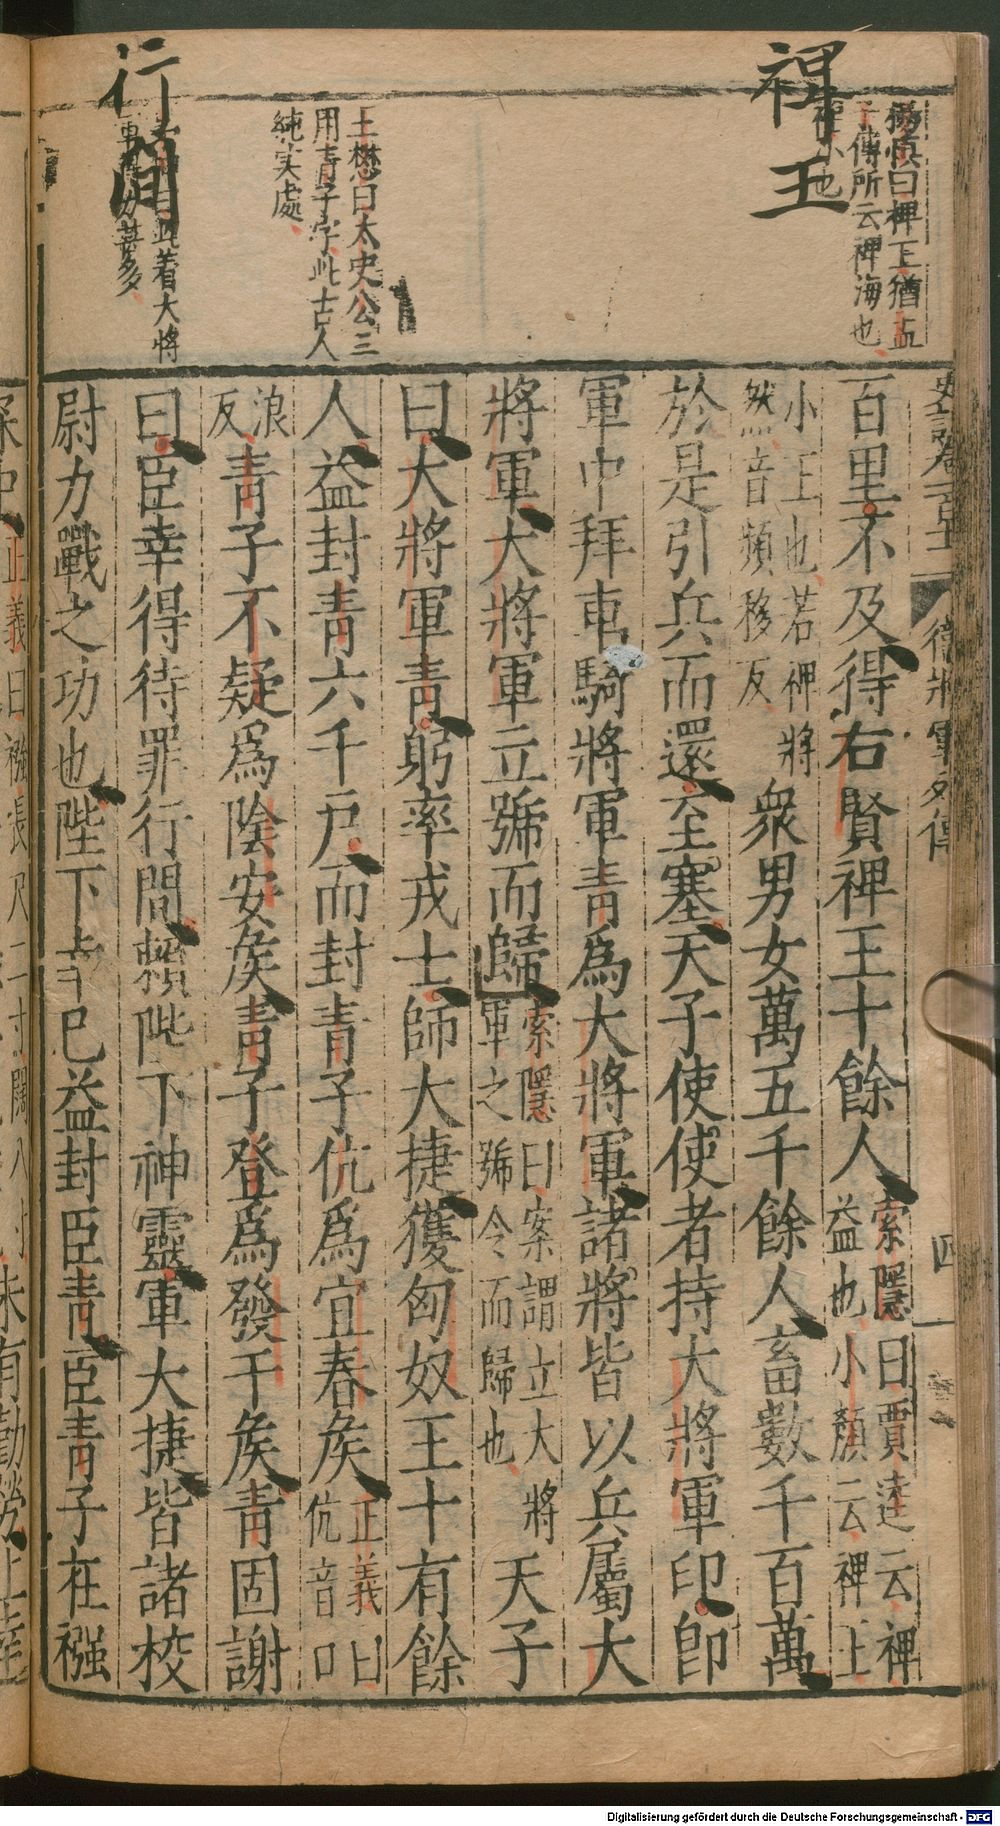 裨王
楊慎曰裨王猶孟
子傳所云裨海也
裨小也
王懋曰太史公三
用青子字此古人
純実處
行間
着大將
百里不及得右賢裨王十餘人索隱曰賈逵云裨
益也小顏云裨王
小王也若裨將
然音頻移反
衆男女萬五千餘人畜數千百萬
於是引兵而還至塞天子使使者持大將軍印即
軍中拜車騎將軍青爲大將軍諸將皆以兵屬大
將軍大將軍立號而歸索隱曰案謂立大將
軍之號令而歸也
天子
曰大將軍青躬率戎士師大捷獲匈奴王十有餘
人益封青六千戶而封青子伉爲宜春矦正義曰
伉音口
浪
反
青子不疑爲陰安矦青子登爲發干矦青固謝
曰臣幸得待罪行間賴陛下神靈軍大捷皆諸校
尉力戰之功也陛下幸已益封臣青臣青子在襁
衛將軍列傳
四
Digitalisierung gefördert durch die Deutsche Forschungsgemeinschaft - DFG